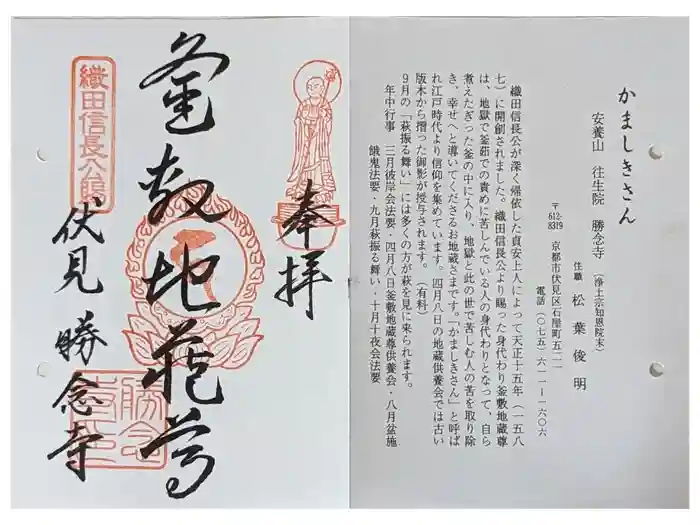 奉拝
釜敷地蔵尊
織田信長公賜
伏見 勝念寺
かましきさん
安養山 往生院 勝念寺 (浄土宗知恩院末)
住職 松葉俊明
〒612-8319 京都市伏見区石屋町五二一
電話(〇七五)六一一ー一六〇六
織田信長公が深く帰依した貞安上人によって天正十五年(一五八
七)に開創されました。織田信長公より賜った身代わり釜敷地蔵尊
は、地獄で釜茹での責めに苦しんでいる人の身代わりとなって、自ら
煮えたぎった釜の中に入り、地獄と此の世で苦しむ人の苦を取り除
き、幸せへと導いてくださるお地蔵さまです。「かましきさん」と呼ば
れ江戸時代より信仰を集めています。四月八日の地蔵供養会では古い
版本から摺った御影が授与されます。(有料)
9月の「萩振る舞い」には多くの方が萩を見に来られます。
年中行事 三月彼岸会法要・四月八日釜敷地蔵尊供養会・八月盆施
餓鬼法要・九月萩振る舞い・十月十夜会法要